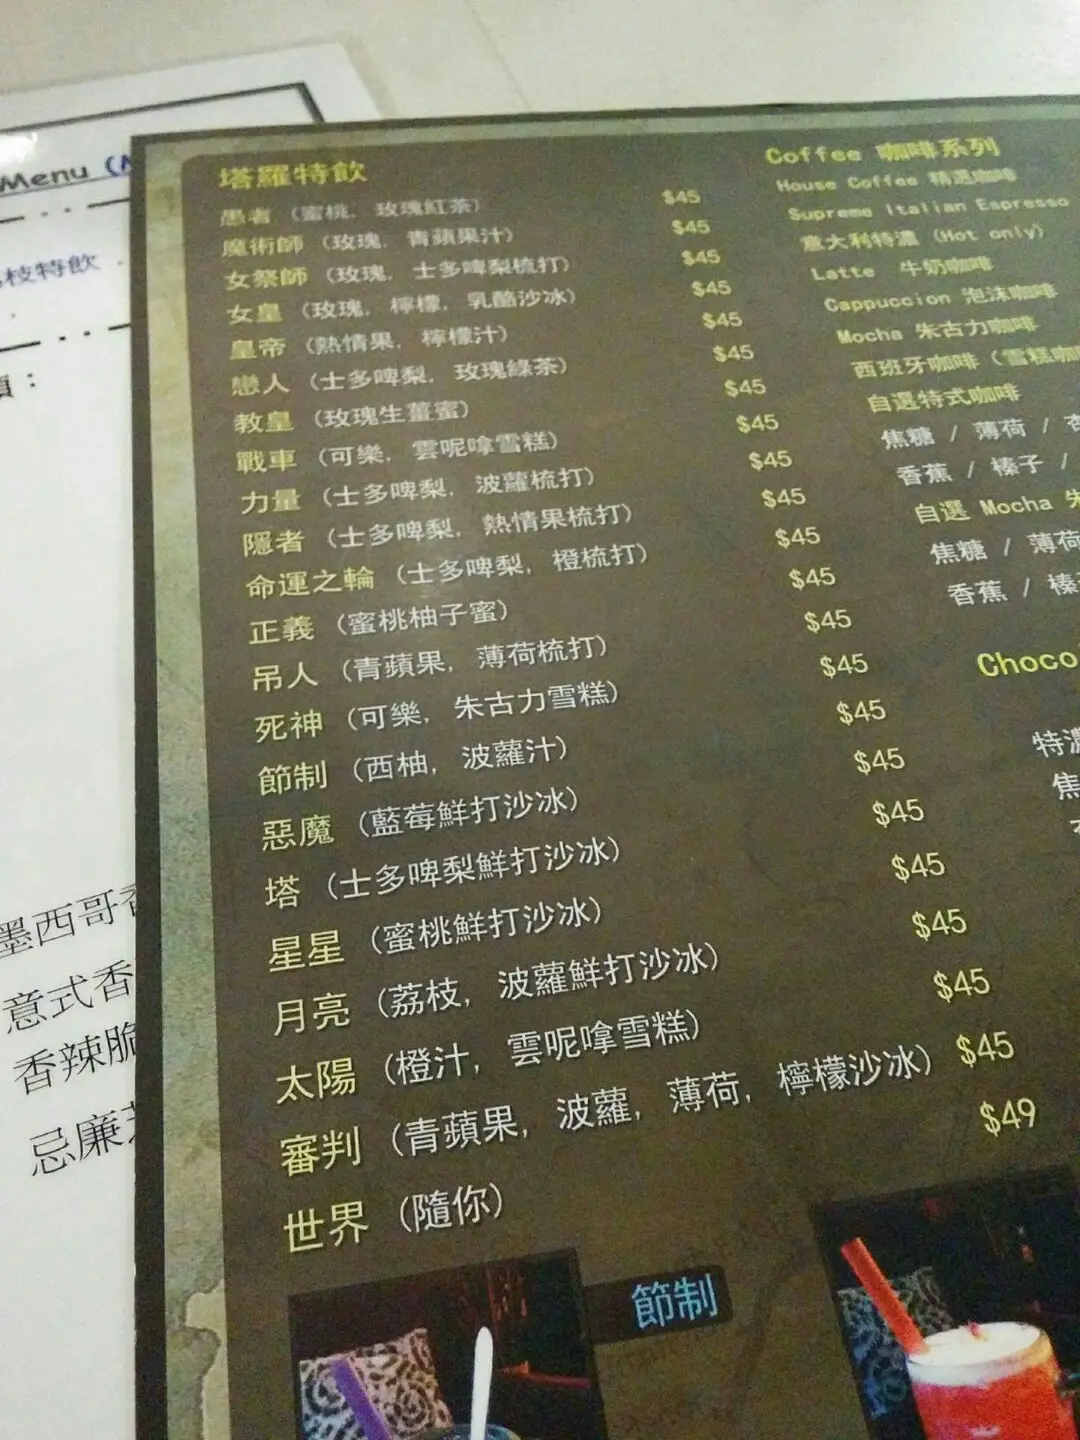 Menu
枝特飲
墨西哥
意式香
香辣脆
忌廉
塔羅特飲
愚者 (蜜桃, 玫瑰紅茶) $45
魔術師 (玫瑰, 青蘋果汁) $45
女祭師 (玫瑰, 士多啤梨梳打) $45
女皇 (玫瑰, 檸檬, 乳酪沙冰) $45
皇帝 (熱情果, 檸檬汁) $45
戀人 (士多啤梨, 玫瑰綠茶) $45
教皇 (玫瑰生薑蜜) $45
戰車 (可樂, 雲呢拿雪糕) $45
力量 (士多啤梨, 波蘿梳打) $45
隱者 (士多啤梨, 熱情果梳打) $45
命運之輪 (士多啤梨, 橙梳打) $45
正義 (蜜桃柚子蜜) $45
吊人 (青蘋果, 薄荷梳打) $45
死神 (可樂, 朱古力雪糕) $45
節制 (西柚, 波蘿汁) $45
惡魔 (藍莓鮮打沙冰) $45
塔 (士多啤梨鮮打沙冰) $45
星星 (蜜桃鮮打沙冰) $45
月亮 (荔枝, 波蘿鮮打沙冰) $45
太陽 (橙汁, 雲呢拿雪糕) $45
審判 (青蘋果, 波蘿, 薄荷, 檸檬沙冰) $45
世界 (隨你) $49
節制
Coffee 咖啡系列
House Coffee 精選咖啡
Supreme Italian Espresso
意大利特濃 (Hot only)
Latte 牛奶咖啡
Cappuccion 泡沫咖啡
Mocha 朱古力咖啡
西班牙咖啡 (雪糕咖
自選特式咖啡
焦糖 / 薄荷 /
香蕉 / 榛子 /
自選 Mocha 朱
焦糖 / 薄荷
香蕉 / 榛
Choco
特濃
焦